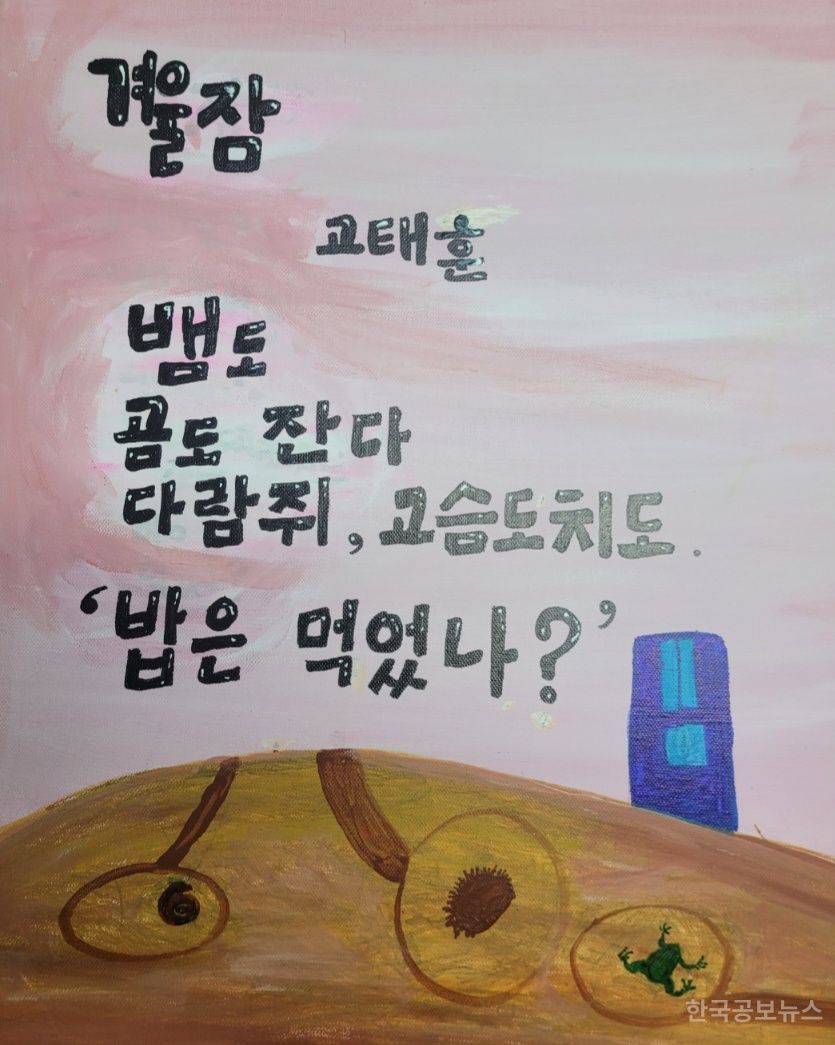 겨울잠
고태훈
뱀도
곰도 잔다
다람쥐, 고슴도치도.
‘밥은 먹었나?’
한국공보뉴스